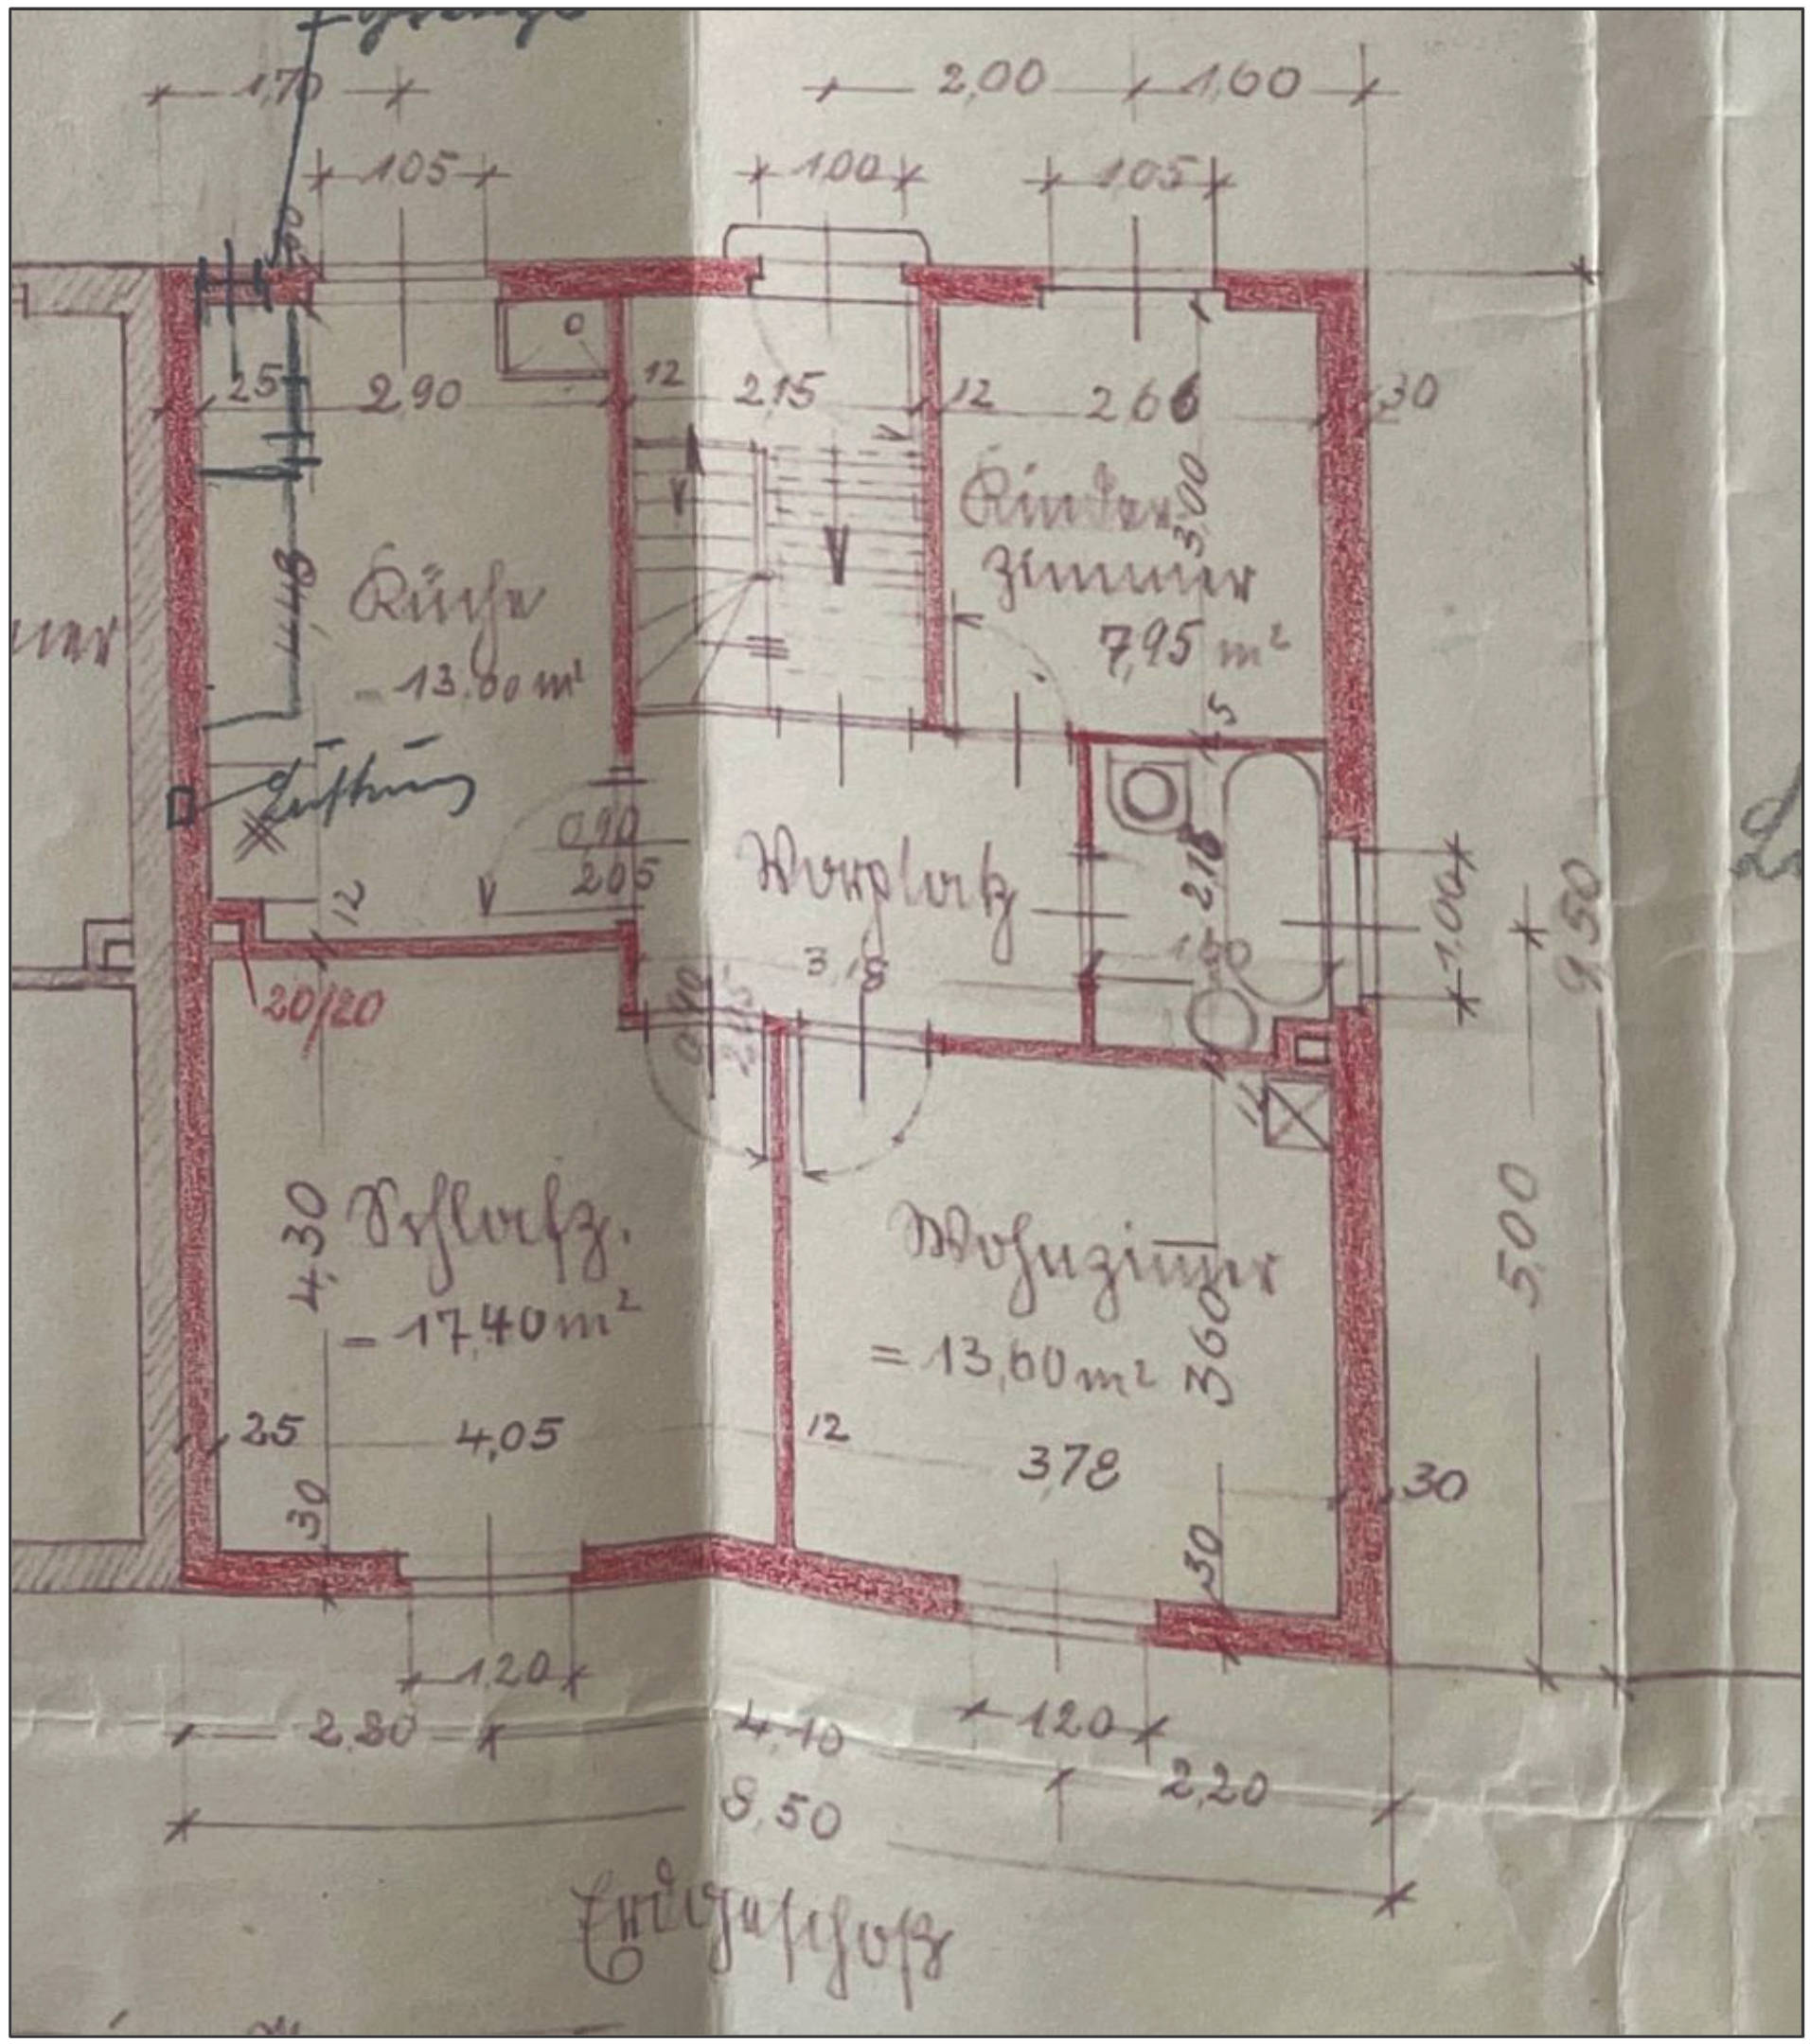 1,70
2,00
1,60
1,05
1,00
1,05
25
2,90
12
2,15
12
2,66
30
Kinder
zimmer
3,00
7,95 m²
5
4,48
Küche
- 13,00 m²
Lüftung
0,90
2,05
12
Vorplatz
2,18
1,50
1,00
9,50
3,18
20/20
0,90
2,05
12
5,00
4,30
Schlafz.
- 17,40 m²
Wohnzimmer
= 13,60 m²
3,60
25
4,05
12
3,78
30
30
30
1,20
1,20
2,20
4,10
2,20
8,50
Erdgeschoß